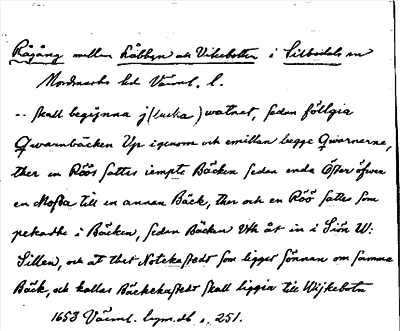 Rågång mellan Låbbyn och Vikebotten i Silbodals sn
Nordmarks hd Värml. l.
-- skall begijnna j (luska) watnet, sedan föllgia
Qwarnbäcken Up igenom och emillan begge Qwarnerne,
ther en Röös sattes iempte Bäcken sedan enda Öster öfwer
en Mosa till en annan Bäck, ther och en Röö sattes som
pekadhe i Bäcken, sedan Bäcken Uth åt in i Siön W:
Sillen, och åt thet Notekastedt som ligger sönnan om samma
Bäck, och kallas Bäckekastedt skall liggia till Wijkebotn
1653 Värml. lagm.db s. 251.